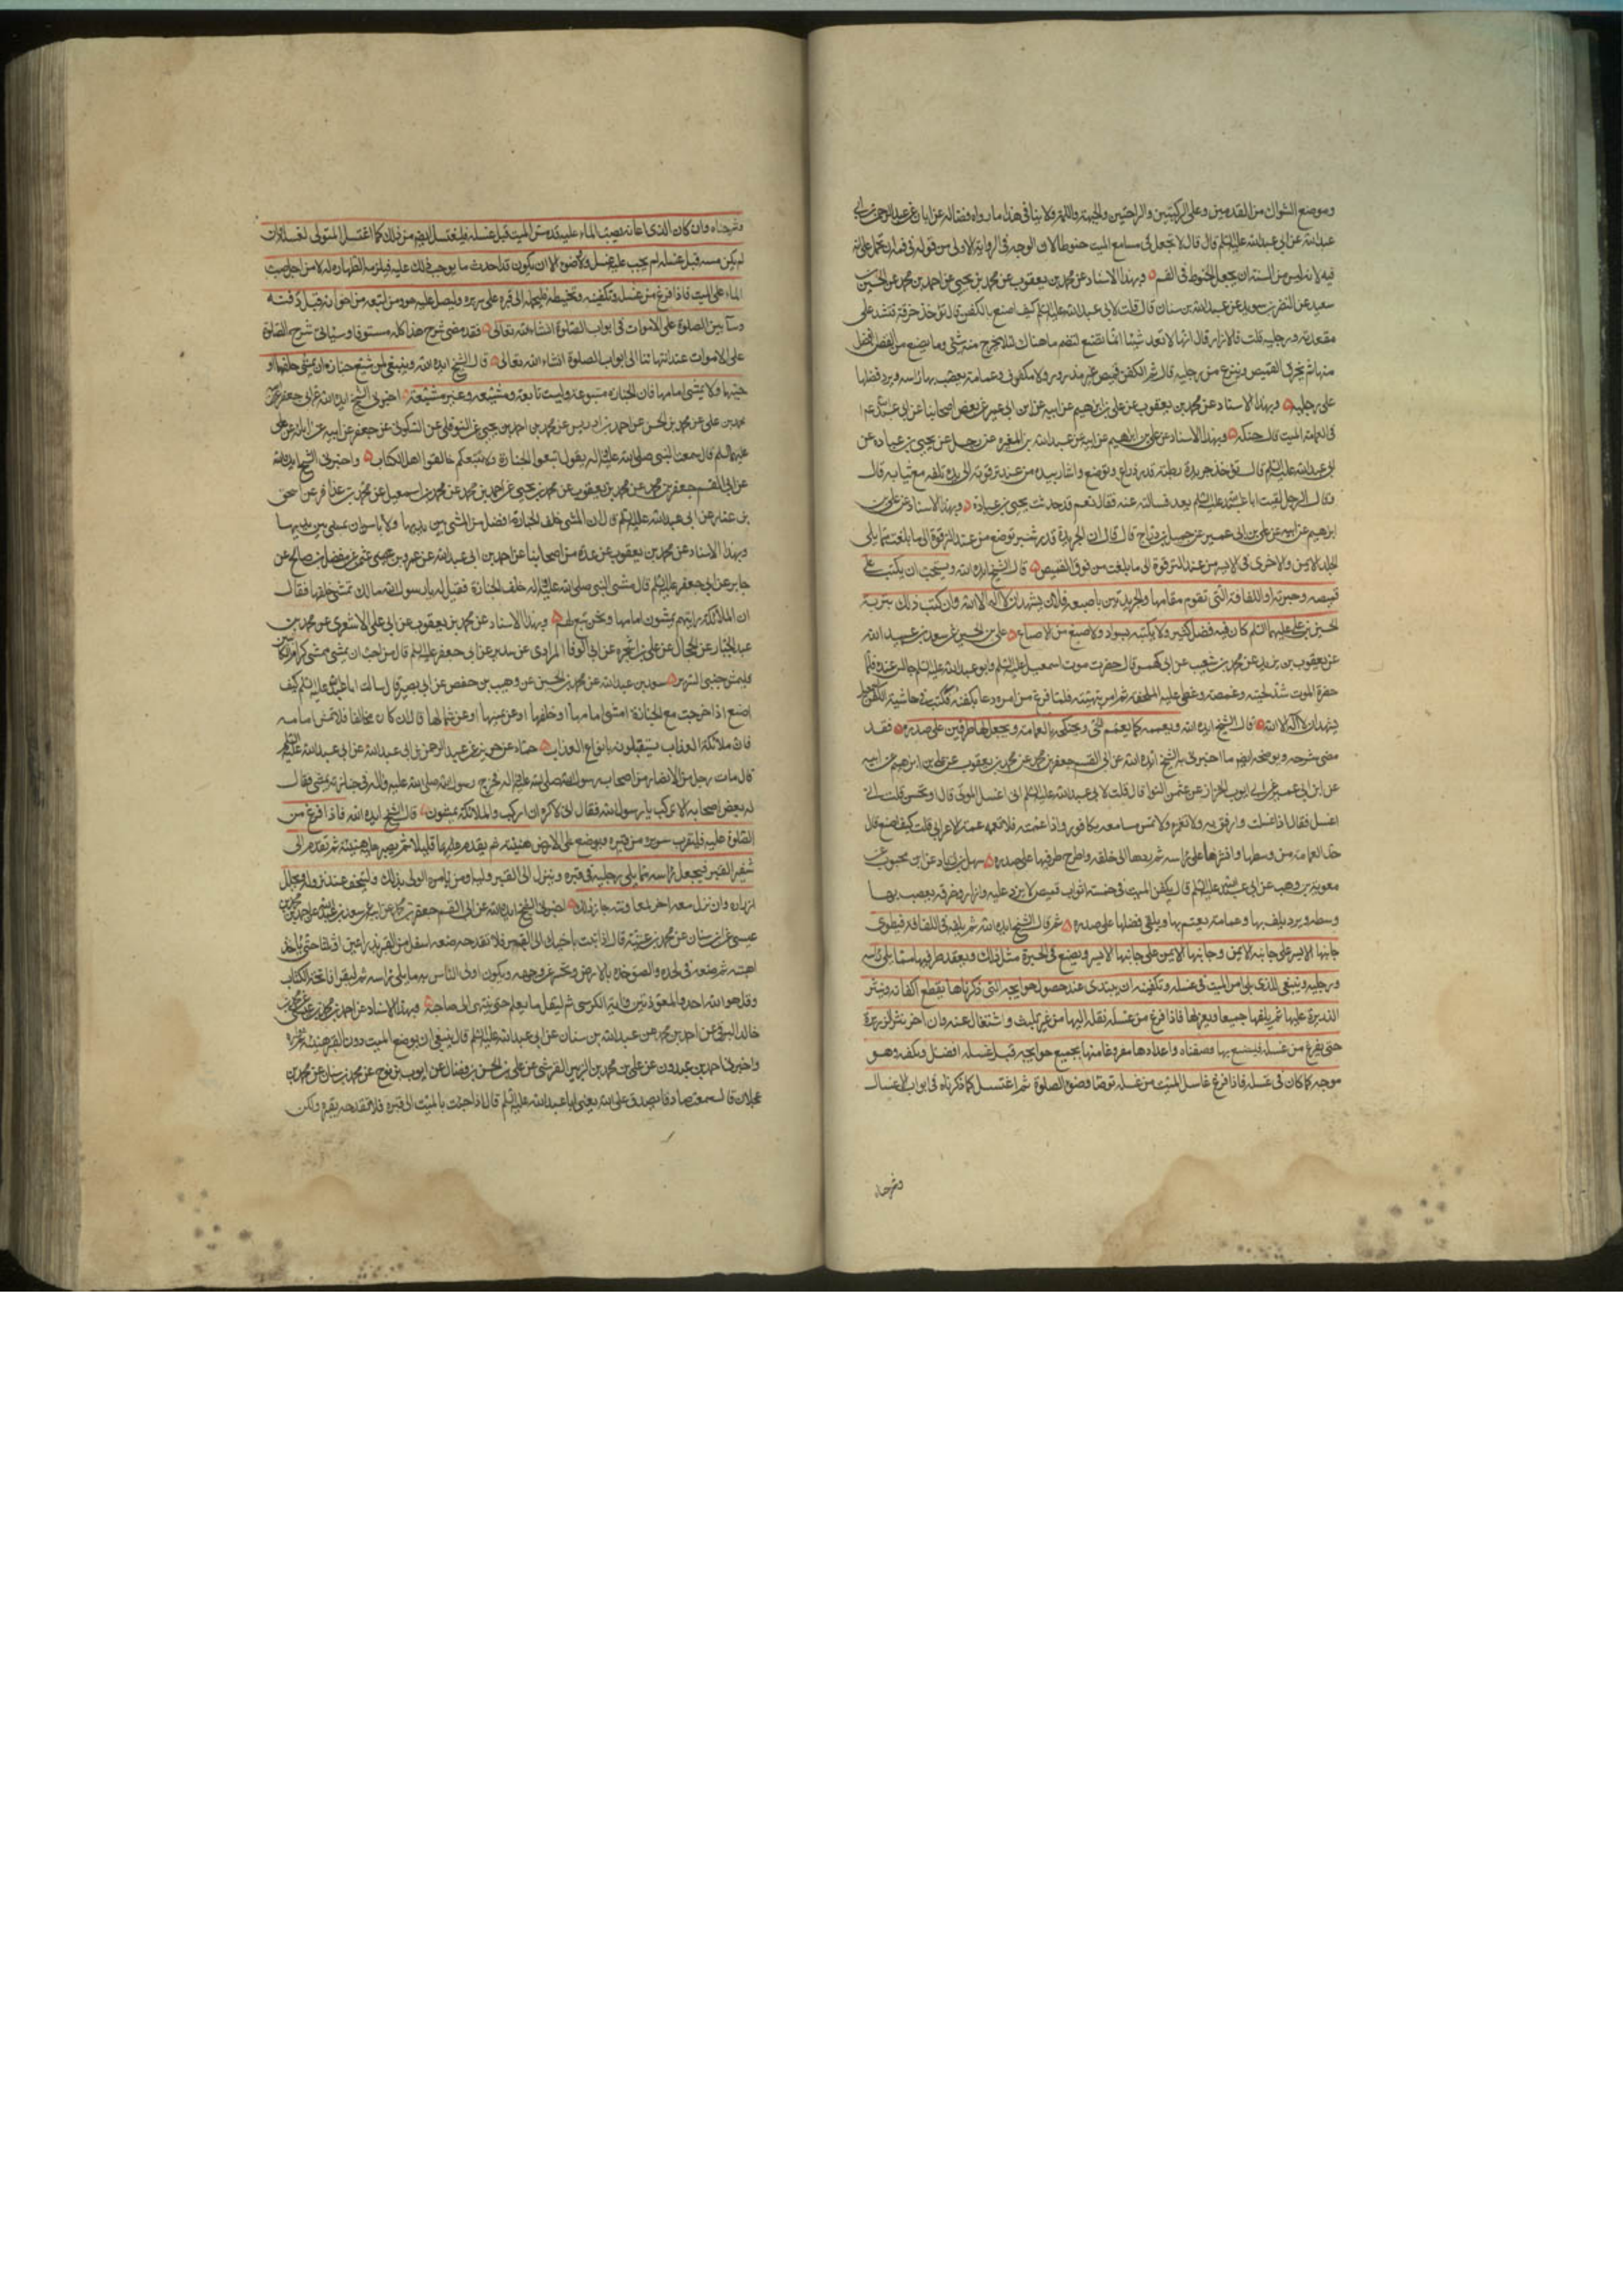 وموضع الشراك من القدمين وعلى الركبتين والراحتين والجبهة واللبة ولا ينافى هذا ما رواه فضالة عن ابان عن عبد الرحمن بن ابى
عبد الله عن ابى عبد الله عليه السلم قال قال لا تجعل فى مسامع الميت حنوطا لان الوجه فى الرواية الاولى من قوله فى فمه ان نحمل على انه
فيه لانه ليس من السنة ان يجعل الحنوط فى الفم وبهذا الاسناد عن محمد بن يعقوب عن محمد بن يحيى عن احمد بن محمد عن الحسين بن
سعيد عن النضر بن سويد عن عبد الله بن سنان قال قلت لابى عبد الله عليه السلم كيف اصنع بالكفن قال تؤخذ خرقة فتشد على
مقعدته ورجليه قلت فالازار قال انها لا تعد شيئا انما تصنع لتضم ما هناك لئلا يخرج منه شئ وما يصنع من القطن افضل
منها ثم يخرق القميص وينزع من رجليه قال ثم الكفن قميص غير مزرور ولا مكفوف وعمامة يعصب بها راسه ويرد فضلها
على رجليه وبهذا الاسناد عن محمد بن يعقوب عن على بن ابرهيم عن ابيه عن ابن ابى عمير عن بعض اصحابنا عن ابى عبد الله ع
فى العمامة للميت قال حنكه وبهذا الاسناد عن على بن ابرهيم عن ابيه عن عبد الله بن المغيرة عن رجل عن يحيى بن عبادة عن
ابى عبد الله عليه السلم قال تؤخذ جريدة رطبة قدر ذراع وتوضع واشار بيده من عند ترقوته الى يده تلف مع ثيابه قال
وقال الرجل لقيت ابا عبد الله عليه السلم بعد فسالته عنه فقال نعم قد حدثت به يحيى بن عبادة وبهذا الاسناد عن على بن
ابرهيم عن ابيه عن ابن ابى عمير عن جميل بن دراج قال قال ان الجريدة قدر شبر توضع من عند الترقوة الى ما بلغت مما يلى
الجلد الايمن والاخرى فى الايسر من عند الترقوة الى ما بلغت من فوق القميص قال الشيخ ايده الله ويستحب ان يكتب على
قميصه وحبرته او اللفافة التى تقوم مقامها والجريدتين باصبعه فلان يشهد ان لا اله الا الله وان كتب ذلك بتربة
الحسين بن على عليهما السلم كان فيه فضل كثير ولا يكتبه بسواد ولا صبغ من الاصباغ على بن الحسين عن سعد بن عبد الله
عن يعقوب بن يزيد عن محمد بن شعيب عن ابى كهمس قال حضرت موت اسمعيل عليه السلم وابو عبد الله عليه السلم جالس عنده فلما
حضره الموت شد لحيته وغمضه وغطى عليه الملحفة ثم امر بتهيئته فلما فرغ من امره دعا بكفنه فكتب فى حاشية الكفن اسمعيل
يشهد ان لا اله الا الله قال الشيخ ايده الله ويعممه كما يعمم الحى ويحنكه بالعمامة ويجعل لها طرفين على صدره فقد
مضى شرحه ويوضحه ايضا ما اخبرنى به الشيخ ايده الله عن ابى القسم جعفر بن محمد عن محمد بن يعقوب عن على بن ابرهيم عن ابيه
عن ابن ابى عمير عن ابى ايوب الخزاز عن عثمن النوا قال قلت لابى عبد الله عليه السلم انى اغسل الموتى قال او تحسن قلت انى
اغسل فقال اذا غسلت فارفق به ولا تغمزه ولا تمس مسامعه بكافور واذا عممته فلا تعممه عمة الاعرابى قلت كيف اصنع قال
خذ العمامة من وسطها وانشرها على راسه ثم ردها الى خلفه واطرح طرفيها على صدره سهل بن زياد عن ابن محبوب عن
معوية بن وهب عن ابى عبد الله عليه السلم قال يكفن الميت فى خمسة اثواب قميص لا يزر عليه وازار وخرقة يعصب بها
وسطه وبرد يلف بها وعمامة يعتم بها ويلقى فضلها على صدره ثم قال الشيخ ايده الله ثم يلفه فى اللفافة فيطوى
جانبها الايسر على جانبه الايمن وجانبها الايمن على جانبها الايسر ويصنع فى الحبرة مثل ذلك ويعقد طرفيها مما يلى راسه
ورجليه وينبغى للذى يلى امر الميت فى غسله وتكفينه ان يبتدى عند حصول حوايجه التى ذكرناها بقطع اكفانه وينثر
الذريرة عليها ثم يلفها جميعا ويعزلها فاذا فرغ من غسله نقله اليها من غير تلبث واشتغال عنه وان اخر نثر الذريرة
حتى يفرغ من غسله فليصنع بها وصفناه واعدادها مفروغا منها بجميع حوايجه قبل غسله افضل ويكفنه وهو
موجه كما كان فى غسله فاذا فرغ غاسل الميت من غسله توضا وضوء الصلوة ثم اغتسل كما ذكرناه فى ابواب الاغسال
وشرحناه
وشرحناه وان كان الذى اعانه بصب الماء عليه قد مس الميت قبل غسله فليغتسل ايضا من ذلك كما اغتسل المتولى لغسله وان
لم يكن مسه قبل غسله لم يجب عليه غسل ولا وضوء الا ان يكون قد احدث ما يوجب ذلك عليه فيلزمه الطهارة له لا من اجل صب
الماء على الميت فاذا فرغ من غسله وتكفينه وتحنيطه فليحمله الى قبره على سريره وليصل عليه هو ومن اتبعه من اخوانه قبل دفنه
وسابين الصلوة على الاموات فى ابواب الصلوة انشاء الله تعالى فقد مضى شرح هذا كله مستوفا وسياتى شرح الصلوة
على الاموات عند انتهائنا الى ابواب الصلوة انشاء الله تعالى قال الشيخ ايده الله وينبغى لمن شيع جنازة ان يمشى خلفها او
جنبها ولا يمشى امامها فان الجنازة متبوعة وليست تابعة ومشيعه وغير مشيعة اخبرنى الشيخ ايده الله عن ابى جعفر
محمد بن على عن محمد بن الحسن عن احمد بن ادريس عن محمد بن احمد بن يحيى عن النوفلى عن السكونى عن جعفر عن ابيه عن ابائه عن على
عليهم السلم قال سمعت النبى صلى الله عليه واله يقول اتبعوا الجنازة ولا تتبعكم خالفوا اهل الكتاب واخبرنى الشيخ ايده الله
عن ابى القسم جعفر بن محمد عن محمد بن يعقوب عن محمد بن يحيى عن احمد بن محمد عن محمد بن اسمعيل عن محمد بن عذافر عن اسحق
بن عمار عن ابى عبد الله عليه السلم قال ان المشى خلف الجنازة افضل من المشى من بين يديها ولا باس ان يمشى بين يديها
وبهذا الاسناد عن محمد بن يعقوب عن عدة من اصحابنا عن احمد بن ابى عبد الله عن عمرو بن عثمن عن مفضل بن صالح عن
جابر عن ابى جعفر عليه السلم قال مشى النبى صلى الله عليه واله خلف الجنازة فقيل له يا رسول الله مالك تمشى خلفها فقال
ان الملائكة رايتهم يمشون امامها ونحن تبع لهم وبهذا الاسناد عن محمد بن يعقوب عن ابى على الاشعرى عن محمد بن
عبد الجبار عن الحجال عن على بن شجرة عن ابى الوفا المرادى عن سدير عن ابى جعفر عليه السلم قال من احب ان يمشى ممشى كرام الكاتبين
فليمش جنبى السرير سعد بن عبد الله عن محمد بن الحسين عن وهيب بن حفص عن ابى بصير قال سالت ابا عبد الله عليه السلم كيف
اصنع اذا خرجت مع الجنازة امشى امامها او خلفها او عن يمينها او عن شمالها قال ان كان مخالفا فلا تمش امامه
فان ملائكة العذاب يستقبلونه بانواع العذاب حماد عن حريز عن عبد الرحمن بن ابى عبد الله عن ابى عبد الله عليه السلم
قال مات رجل من الانصار من اصحاب رسول الله صلى الله عليه واله فخرج رسول الله صلى الله عليه واله فى جنازته يمشى فقال
له بعض اصحابه الا تركب يا رسول الله فقال انى لاكره ان اركب والملائكة يمشون قال الشيخ ايده الله فاذا فرغ من
الصلوة عليه فليقرب سريره من قبره ويوضع على الارض هنيئة ثم يقدم قليلا ثم يصبر عليه هنيئة ثم يقدم الى
شفير القبر فيجعل راسه مما يلى رجليه فى قبره وينزل الى القبر وليه او من يامره الولى بذلك وليتحف عند نزوله ويحلل
ازراره وان نزل معه اخر لمعاونته جاز ذلك اخبرنى الشيخ ايده الله عن ابى القسم جعفر بن محمد عن ابيه عن سعد بن عبد الله عن احمد بن محمد بن
عيسى عن ابن سنان عن محمد بن عطية قال اذا اتيت باخيك الى القبر فلا تفدحه به ضعه اسفل من القبر بذراعين او ثلثة حتى ياخذ
اهبته ثم ضعه فى لحده والصق خده بالارض وتحسر عن وجهه ويكون اولى الناس به مما يلى راسه ثم ليقرا فاتحة الكتاب
وقل هو الله احد والمعوذتين واية الكرسى ثم ليقل ما يعلم حتى ينتهى الى صاحبه وبهذا الاسناد عن احمد بن محمد بن عيسى عن محمد بن
خالد البرقى عن احمد بن محمد عن عبد الله بن سنان عن ابى عبد الله عليه السلم قال ينبغى ان يوضع الميت دون القبر هنيئة ثم واره
واخبرنى احمد بن عبدون عن على بن محمد بن الزبير القرشى عن على بن الحسن بن فضال عن ايوب بن نوح عن محمد بن سنان عن محمد بن
عجلان قال سمعت صادقا يصدق على الله يعنى ابا عبد الله عليه السلم قال اذا جئت بالميت الى قبره فلا تفدحه بقبره ولكن